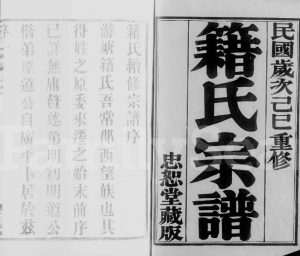 民國歲次己巳重修
籍氏宗譜
忠恕堂藏版
籍氏續修宗譜序
游塘籍氏吾常郡西望族也其
得姓之原委來遷之始末前序
已詳無庸贅述第明初明道公
偕弟達道公自廣平卜居於茲